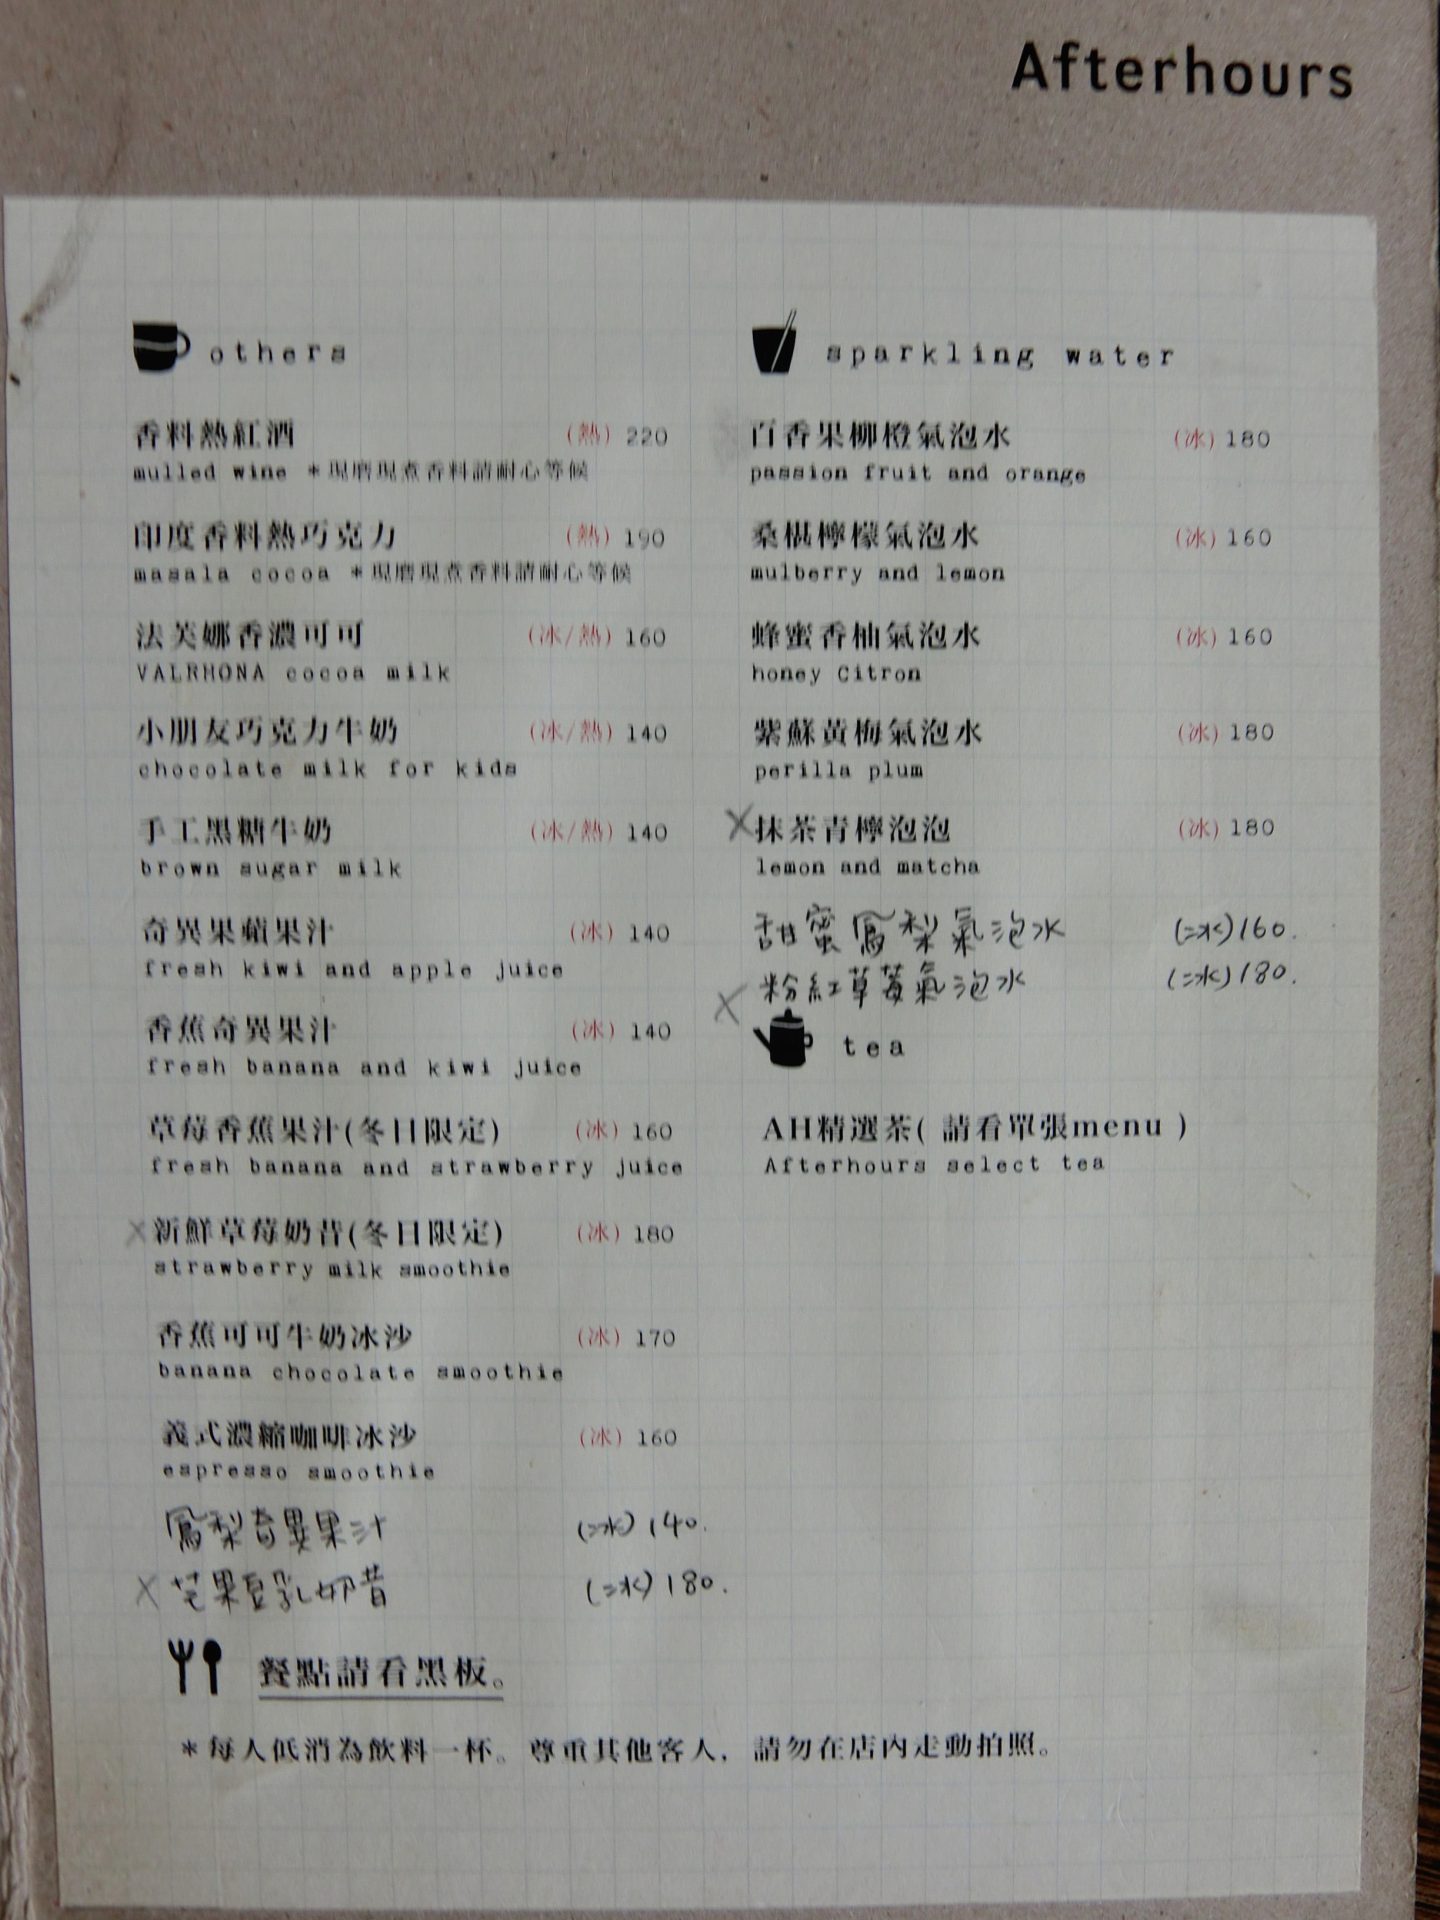 Afterhours
others
香料熱紅酒 (熱) 220
mulled wine *現磨現煮香料請耐心等候
印度香料熱巧克力 (熱) 190
masala cocoa *現磨現煮香料請耐心等候
法芙娜香濃可可 (冰/熱) 160
VALRHONA cocoa milk
小朋友巧克力牛奶 (冰/熱) 140
chocolate milk for kids
手工黑糖牛奶 (冰/熱) 140
brown sugar milk
奇異果蘋果汁 (冰) 140
fresh kiwi and apple juice
香蕉奇異果汁 (冰) 140
fresh banana and kiwi juice
草莓香蕉果汁(冬日限定) (冰) 160
fresh banana and strawberry juice
X 新鮮草莓奶昔(冬日限定) (冰) 180
strawberry milk smoothie
香蕉可可牛奶冰沙 (冰) 170
banana chocolate smoothie
義式濃縮咖啡冰沙 (冰) 160
espresso smoothie
鳳梨奇異果汁 (冰) 140.
X 芒果豆乳奶昔 (冰) 180.
sparkling water
百香果柳橙氣泡水 (冰) 180
passion fruit and orange
桑椹檸檬氣泡水 (冰) 160
mulberry and lemon
蜂蜜香柚氣泡水 (冰) 160
honey Citron
紫蘇黃梅氣泡水 (冰) 180
perilla plum
X 抹茶青檸泡泡 (冰) 180
lemon and matcha
甜蜜鳳梨氣泡水 (冰) 160.
X 粉紅草莓氣泡水 (冰) 180.
tea
AH精選茶( 請看單張menu )
Afterhours select tea
餐點請看黑板。
*每人低消為飲料一杯。尊重其他客人，請勿在店內走動拍照。